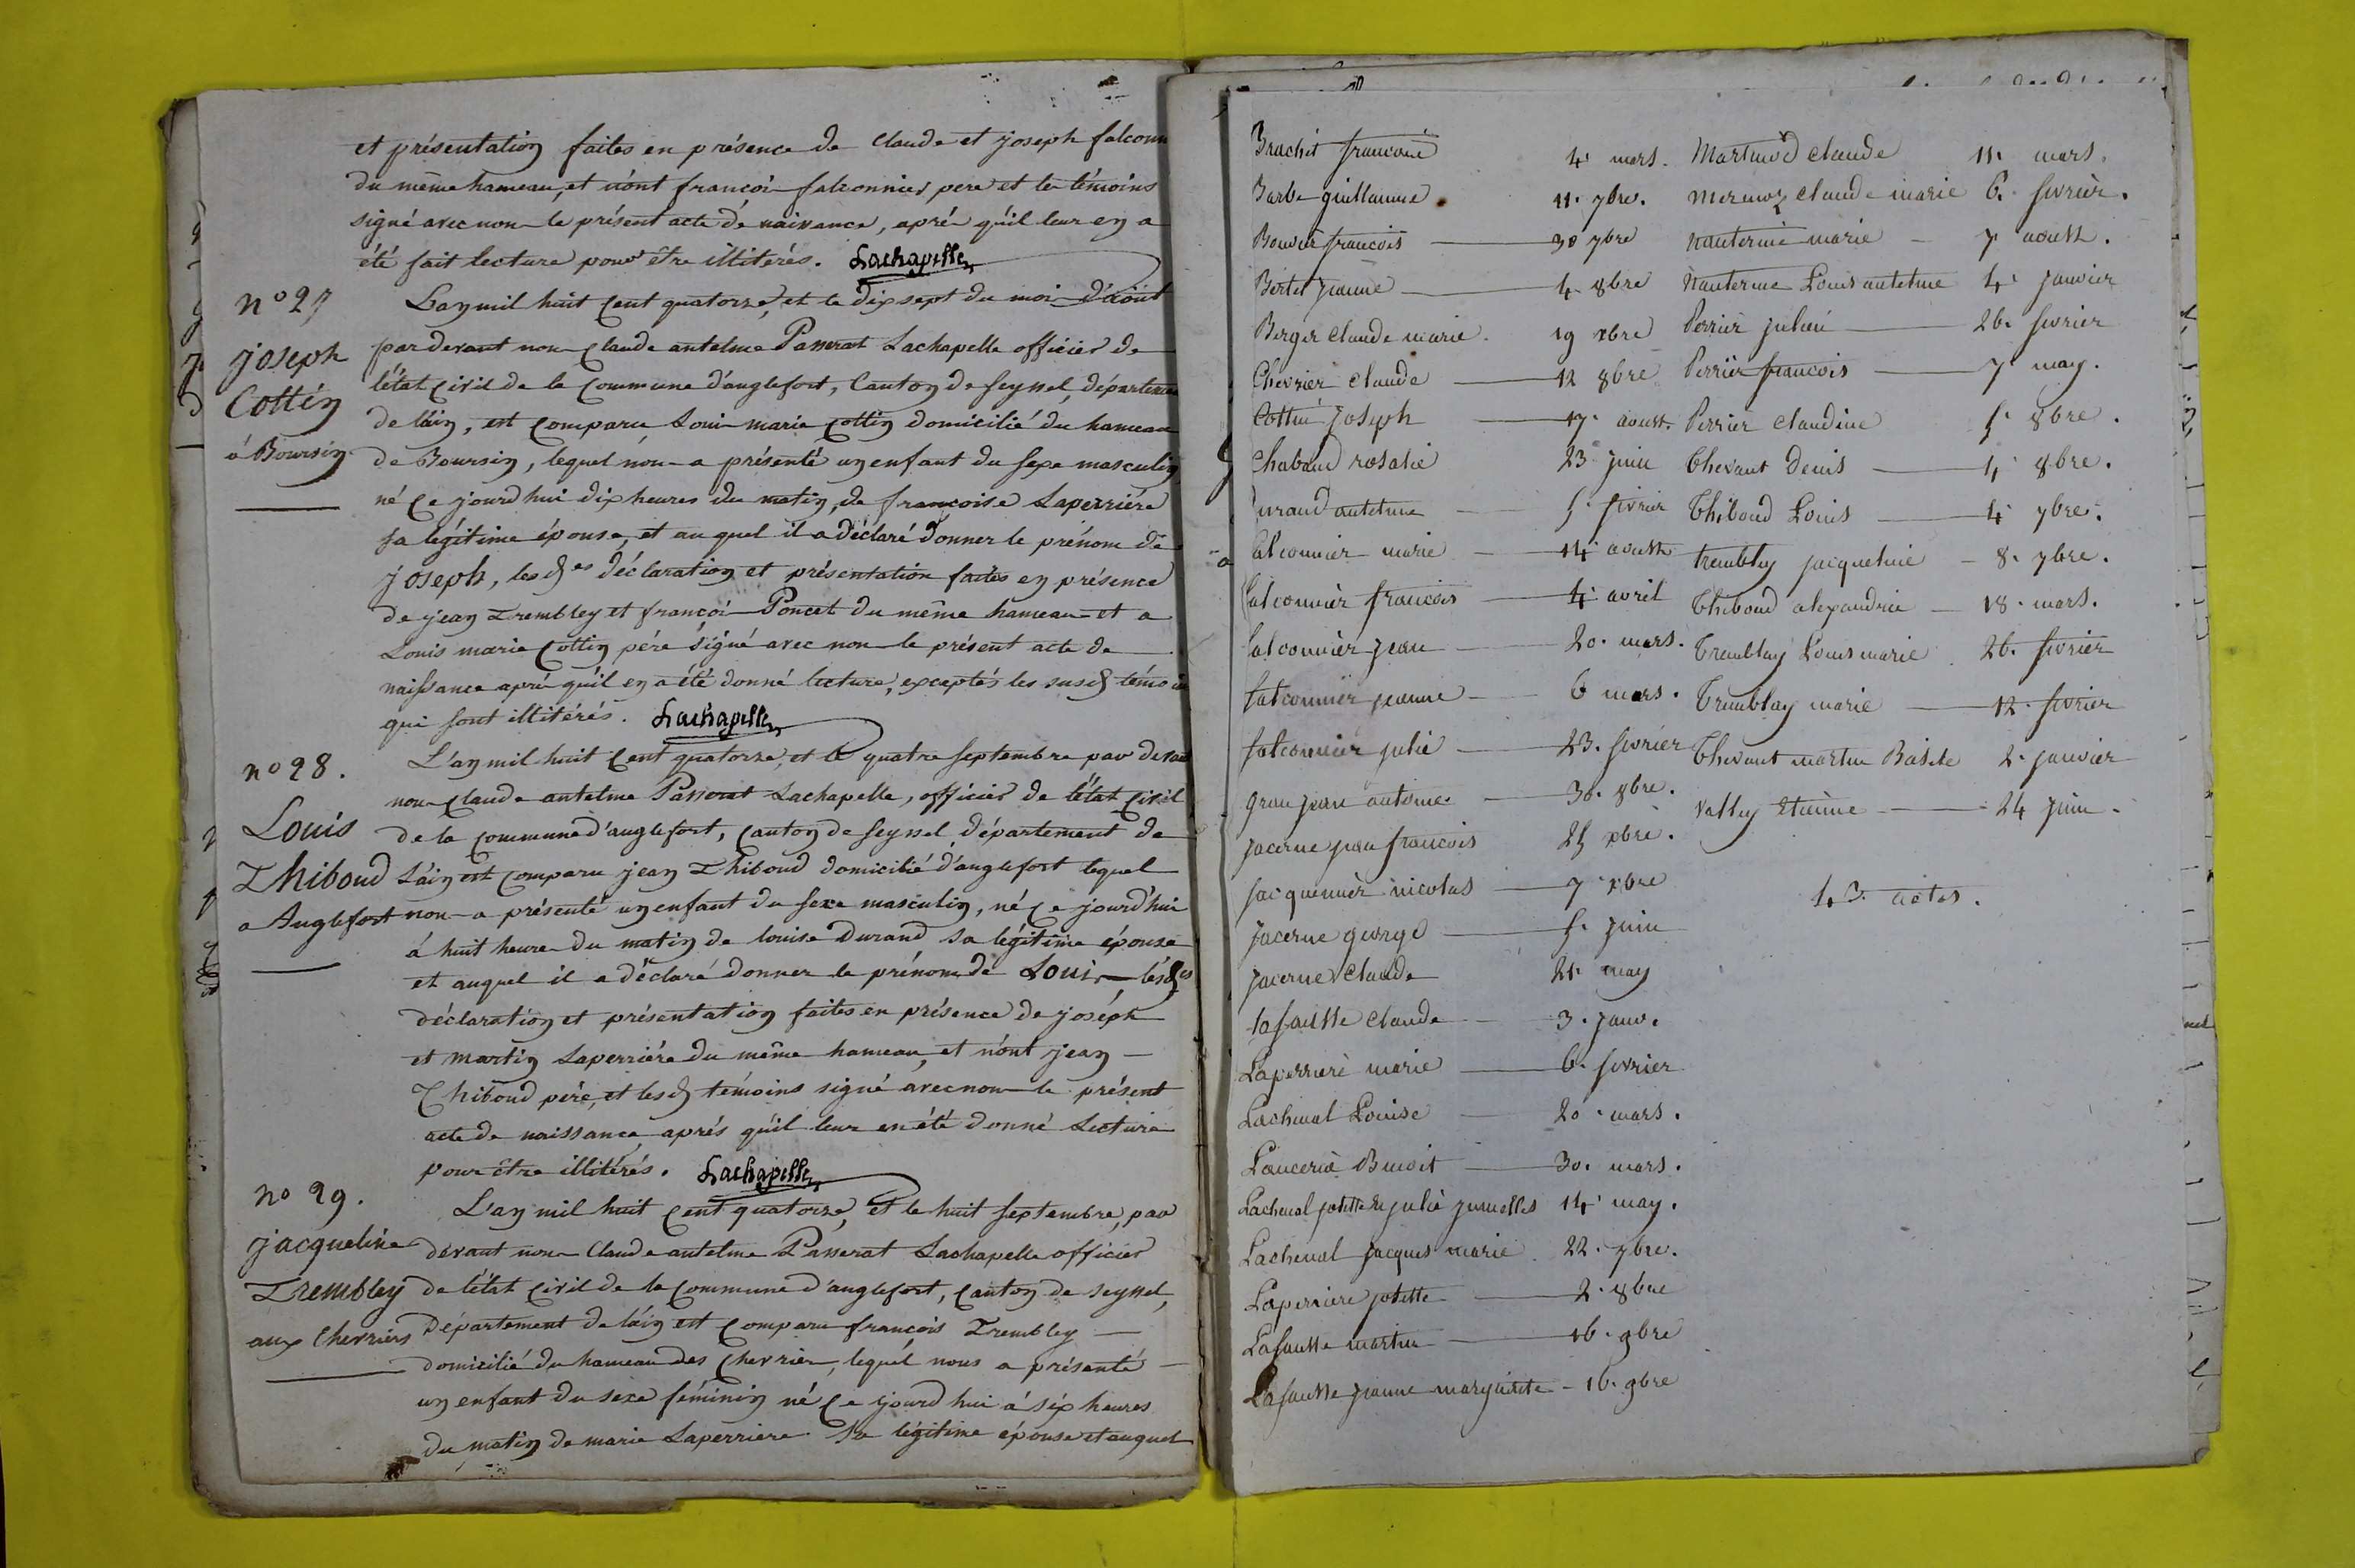 et présentation faites en présence de Claude et joseph falconn
du même hameau, et n'ont françoi falconnier pere et les témoins
signé avec nou le présent acte de naissance, aprés qu'il leur en a
été fait lecture pour être illitérés. Lachapelle
n° 27
joseph
Cottin
à Boursin
L'an mil huit cent quatorze, et le dix sept du moi d'août
par devant nou Claude antelme Passerat Lachapelle officier de
l'état civil de la commune d'anglefort, canton de seyssel, départeme
de l'ain, est comparu Loui marie Cottin domicilié du hameau
de Boursin, lequel nou a présenté un enfant du sexe masculin
né ce jourd'hui dix heures du matin, de francoise Laperriére
sa légitime épouse, et au quel il a déclaré donner le prénom de
joseph, les des déclaration et présentation faites en présence
de jean Trembley et françoi Poncet du même hameau et a
Louis marie Cottin pére signé avec nou le présent acte de
naissance aprés qu'il en a été donné lecture, exceptés les susd témoi
qui sont illitérés. Lachapelle
n° 28.
Louis
Thiboud
a Anglefort
L'an mil huit cent quatorze, et le quatre septembre par devan
nou Claude antelme Passerat Lachapelle, officier de l'état civil
de la commune d'anglefort, canton de seyssel, département de
l'ain est comparu jean Thiboud domicilié d'anglefort lequel
nou a présenté un enfant du sexe masculin, né ce jourd'hui
à huit heure du matin de louise Durand sa légitime épouse
et auquel il a déclaré donner le prénom de Loui, lesdes
déclaration et présentation faites en présence de joséph
et martin Laperriére du même hameau, et n'ont jean
Thiboud pére, et lesd témoins signé avec nou le présent
acte de naissance aprés qu'il leur en été donné Lecture
pour être illitérés. Lachapelle
n° 29.
jacqueline
Trembley
aux Chevriers
L'an mil huit cent quatorze, et le huit septembre, par
devant nou Claude antelme Passerat Lachapelle officier
de l'état civil de la commune d'anglefort, canton de seyssel,
département de l'ain est comparu françois Trembley
domicilié du hameau des Chevrier, lequel nous a présenté
un enfant du sexe féminin né ce jourd'hui à six heures
du matin de marie Laperriere sa légitime épouse et auquel
Brachet francoise 4 mars.
Barbe guillaume. 11. 7bre.
Bouvier francois 30 7bre
Bertet jeanne 4 8bre
Berger claude marie. 19 xbre
Chevrier claude 12 8bre
Cottin joseph 17. aoust.
Chabaud rosalie 23 juin
Durand antelme 5. fevrier
falconnier marie 14 aoust
falconnier francois 4. avril
falconnier jean 20. mars.
falconnier jeanne 6 mars.
falconnier julie 23. fevrier
gran jean antoine 30. 8bre.
jacerne jean francois 25 xbre.
jacquemier nicolas 7 xbre
jacerne george 5. juin
jacerne claude 21. may
lafausse claude 3. janv.
Laperriere marie 6. fevrier
Lacheval Louise 20. mars.
Benoit 30. mars.
Lacheval josette & julie jumelles 14 may.
Lacheval jacques marie. 22. 7bre.
Laperriere josette 2. 8bre
Lafausse martin 16. 9bre
Lafausse jeanne margueritte - 16. 9bre
Martinod claude 11. mars.
mermoz claude marie 6. fevrier.
nanterme marie 7 aoust.
nanterme Louis antelme 4. janvier
Perrier julien 26. fevrier
Perrier francois 7 may.
Perrier claudine 5. 8bre.
Thevant Denis 4. 8bre.
Thiboud Louis 4. 7bre.
trembley jacqueline 8. 7bre.
Thiboud alexandrie 18. mars.
Tremblay Louis marie 26. fevrier
Tremblay marie 12. fevrier
Thevant martin Basile 2. janvier
valley etienne 24 juin.
43 actes.